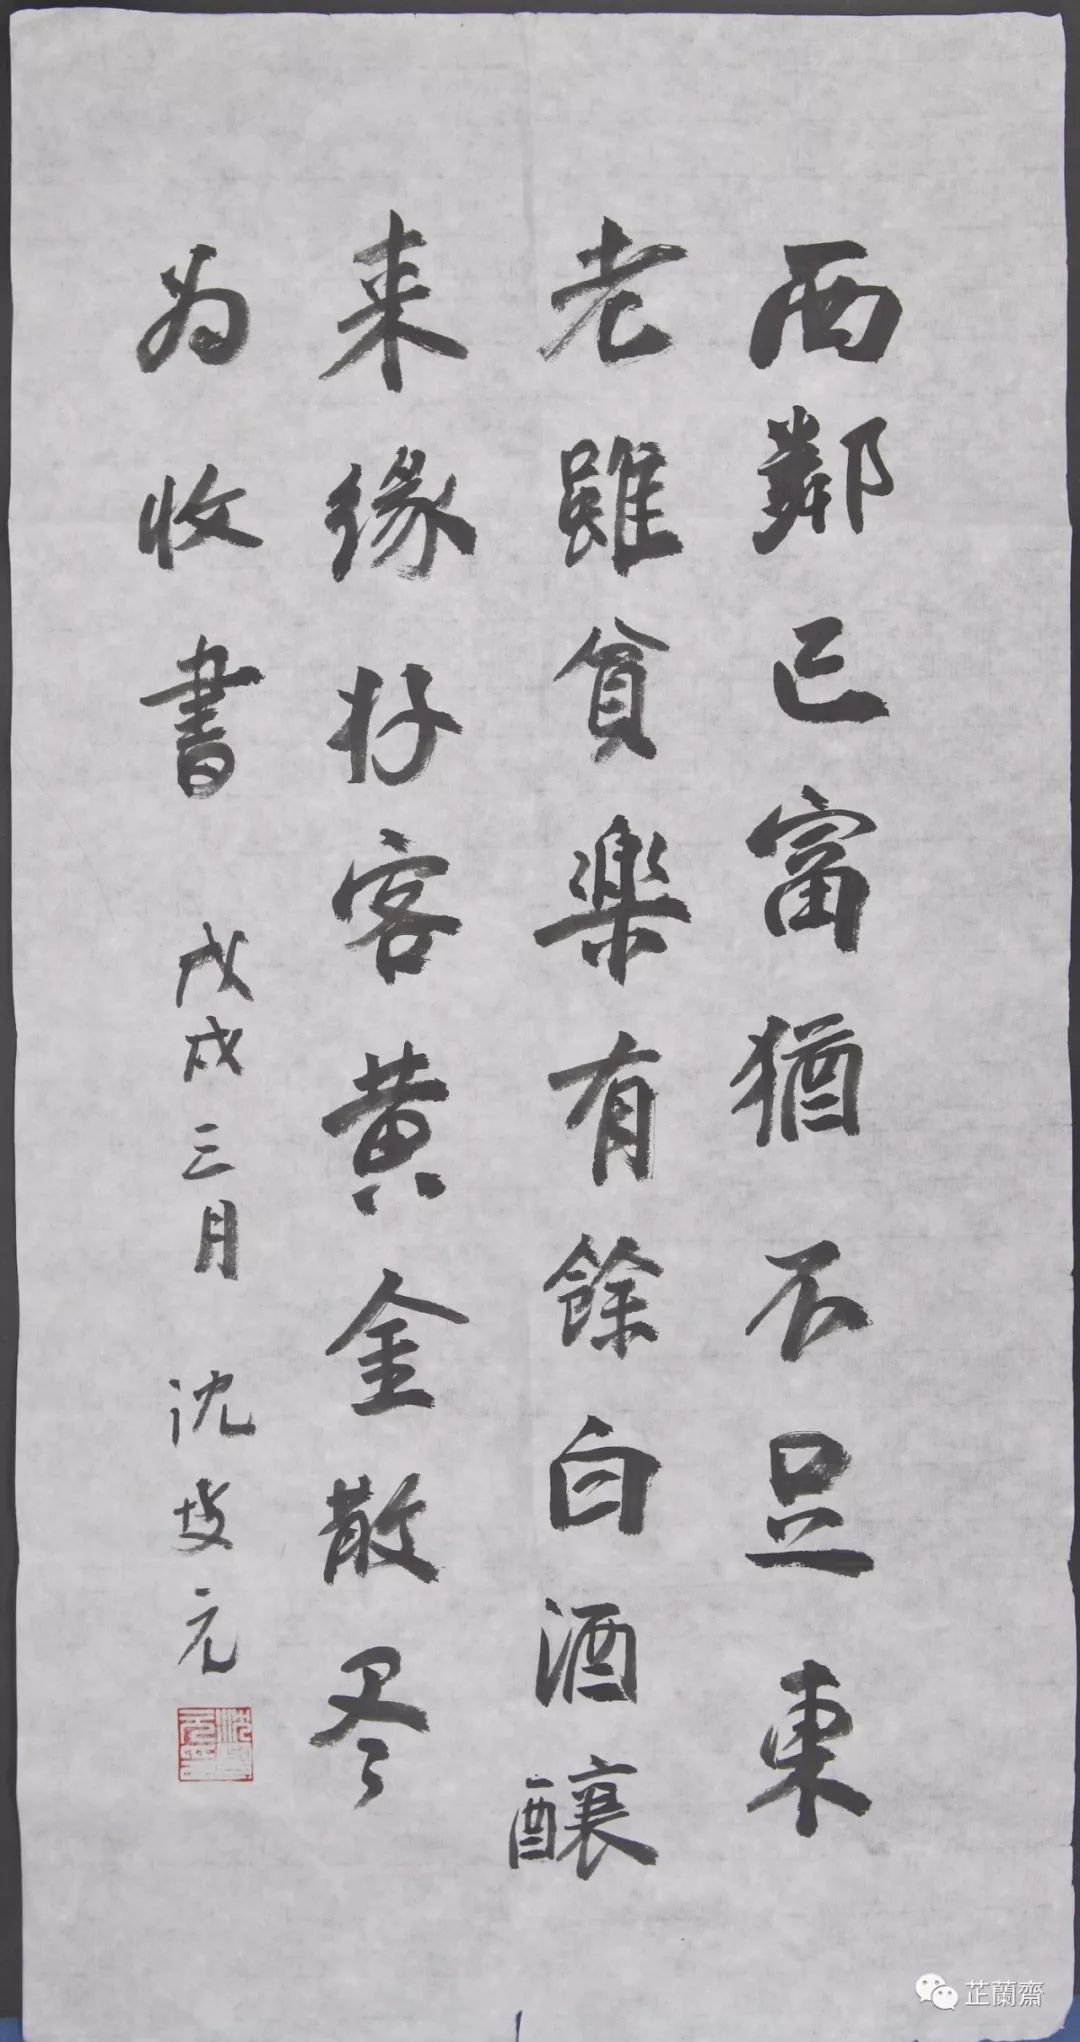 西鄰已富猶不足東
老雖貧樂有餘白酒釀
来緣好客黄金散尽
为收書
戊戌三月 沈	元
芷蘭齋